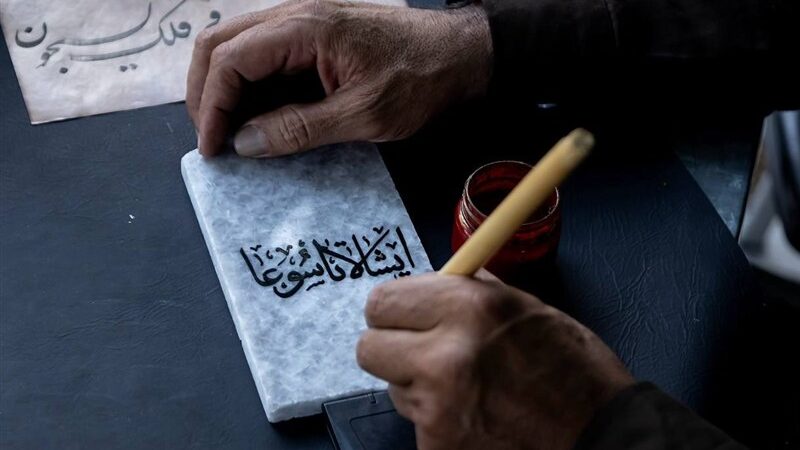 فلک یسبحون
ایشالا تاسُوعا